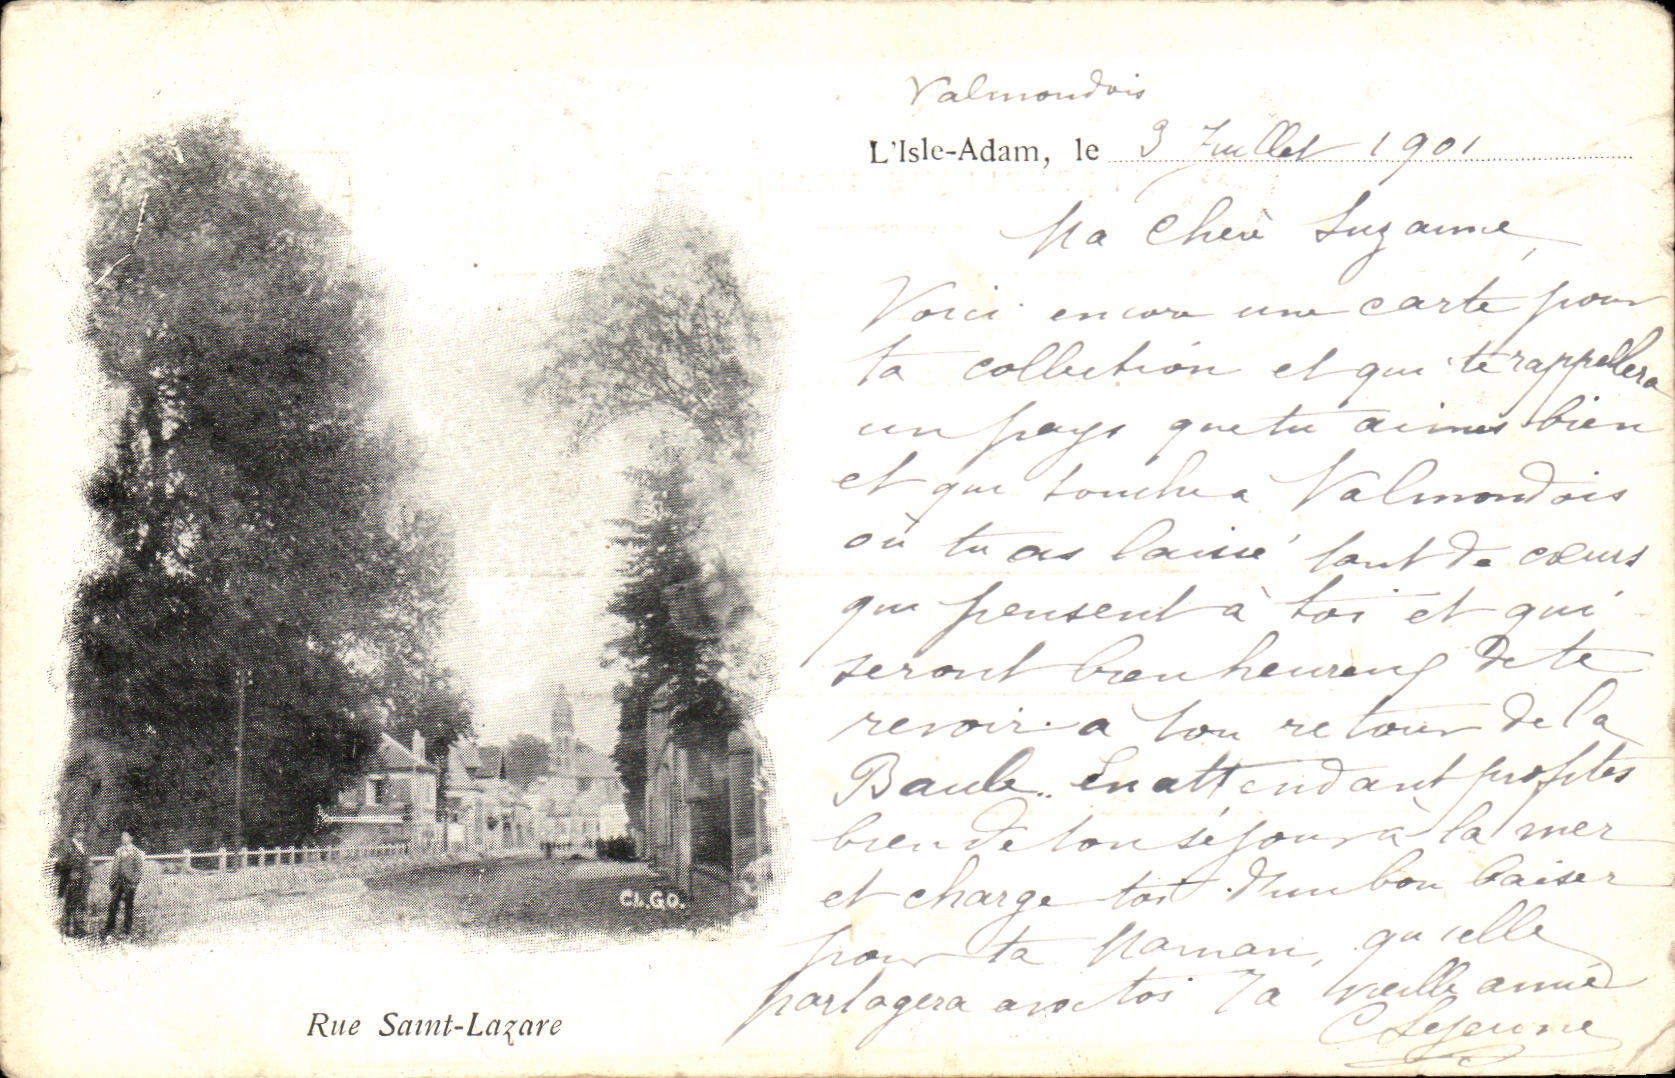 Valmondois
L'Isle-Adam, le 3 Juillet 1901
Ma Chère Suzanne,
Voici encore une carte pour
ta collection et qui te rappellera
un pays que tu aimes bien
et qui touche à Valmondois
où tu as laissé tant de cœurs
qui pensent à toi et qui
seront bien heureux de te
revoir à ton retour de la
Baule. En attendant profites
bien de ton séjour à la mer
et charge toi d'un bon baiser
pour ta Maman, qu'elle
partagera avec toi Ta vieille amie
C Lejeune
Cl. G.O.
Rue Saint-Lazare